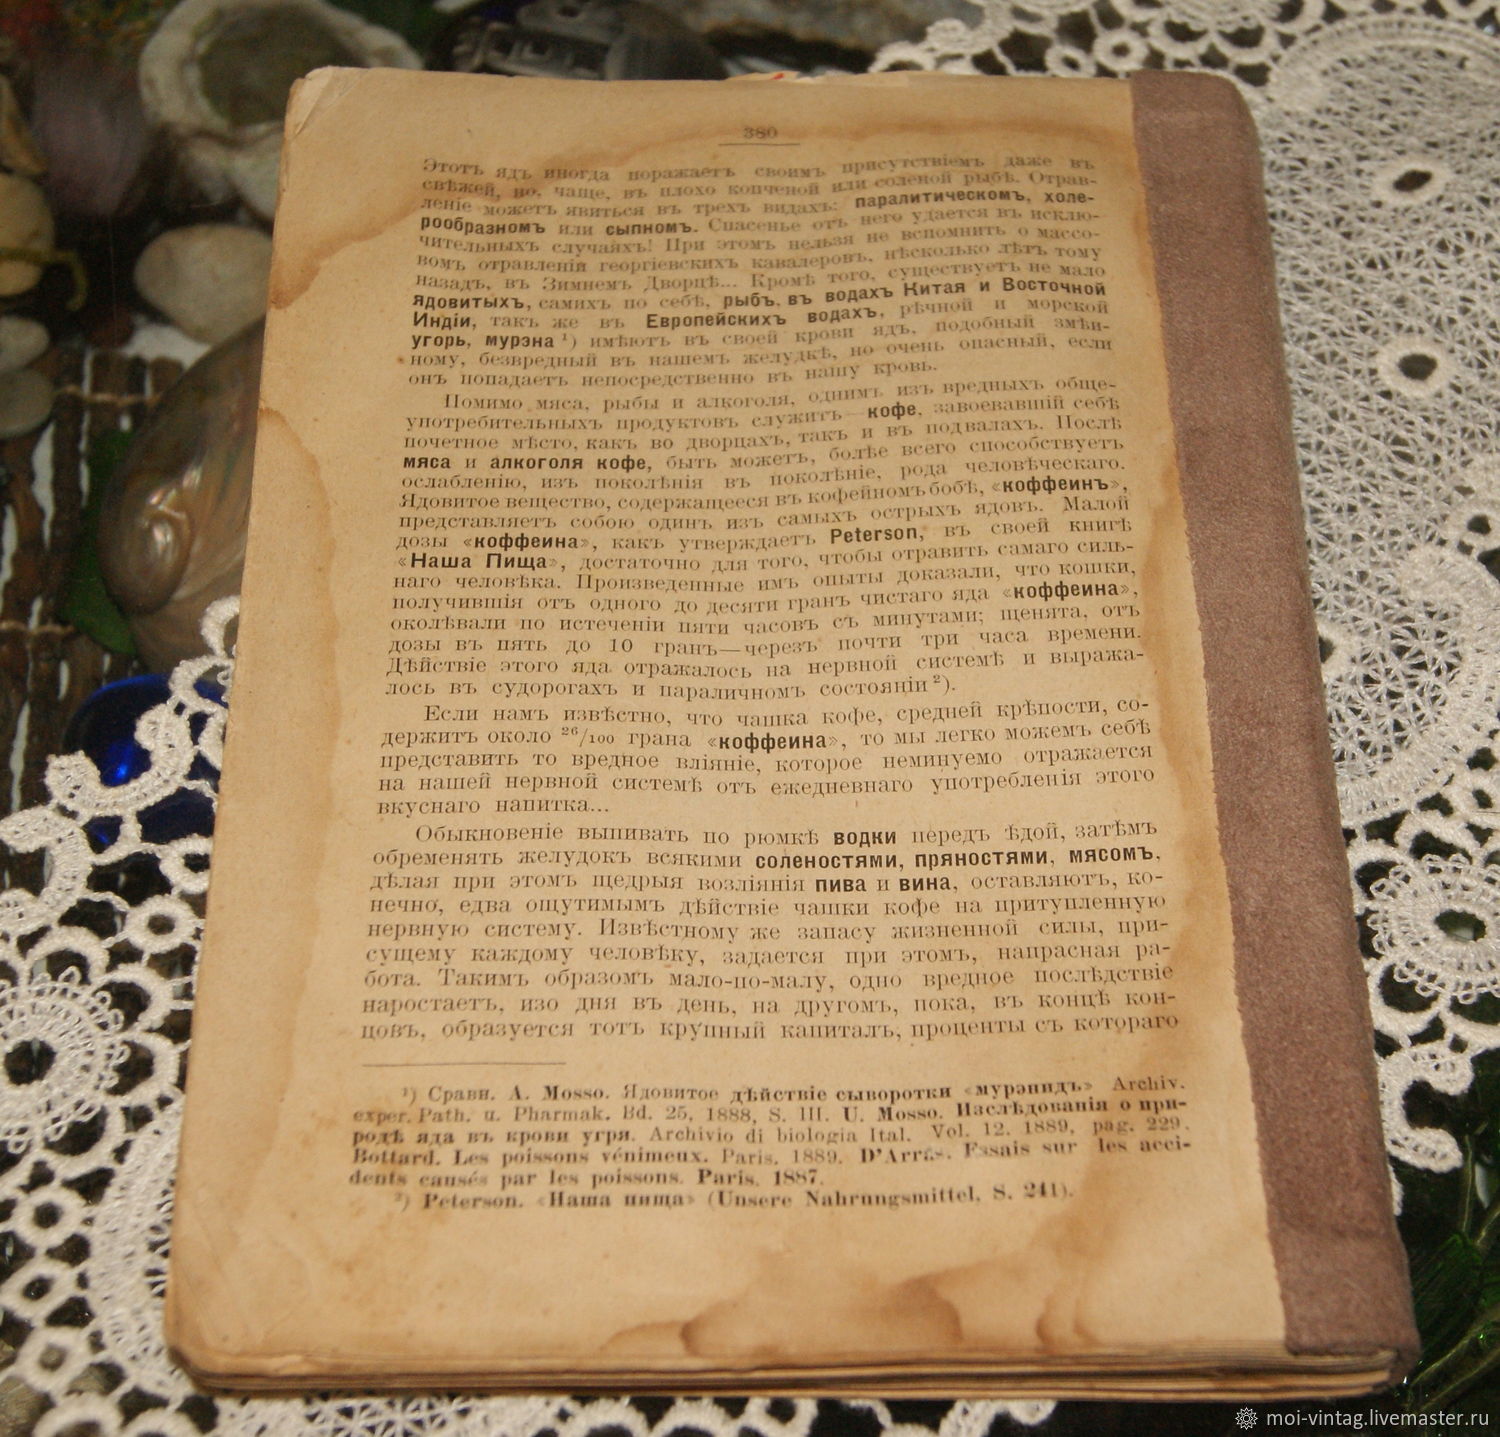 380
Этотъ ядъ иногда поражаетъ своимъ присутствіемъ даже въ
свѣжей, но, чаще, въ плохо копченой или соленой рыбѣ. Отрав-
леніе можетъ явиться въ трехъ видахъ: паралитическомъ, холе-
рообразномъ или сыпномъ. Спасенье отъ него удается въ исклю-
чительныхъ случаяхъ! При этомъ нельзя не вспомнить о массо-
вомъ отравленіи георгіевскихъ кавалеровъ, нѣсколько лѣтъ тому
назадъ, въ Зимнемъ Дворцѣ... Кромѣ того, существуетъ не мало
ядовитыхъ, самихъ по себѣ, рыбъ, въ водахъ Китая и Восточной
Индіи, такъ же въ Европейскихъ водахъ, рѣчной и морской
угорь, мурэна ¹) имѣютъ въ своей крови ядъ, подобный змѣи-
ному, безвредный въ нашемъ желудкѣ, но очень опасный, если
онъ попадаетъ непосредственно въ нашу кровь.
Помимо мяса, рыбы и алкоголя, однимъ изъ вредныхъ обще-
употребительныхъ продуктовъ служитъ кофе, завоевавшій себѣ
почетное мѣсто, какъ во дворцахъ, такъ и въ подвалахъ. Послѣ
мяса и алкоголя кофе, быть можетъ, болѣе всего способствуетъ
ослабленію, изъ поколѣнія въ поколѣніе, рода человѣческаго.
Ядовитое вещество, содержащееся въ кофейномъ бобѣ, «коффеинъ»,
представляетъ собою одинъ изъ самыхъ острыхъ ядовъ. Малой
дозы «коффеина», какъ утверждаетъ Peterson, въ своей книгѣ
«Наша Пища», достаточно для того, чтобы отравить самаго силь-
наго человѣка. Произведенные имъ опыты доказали, что кошки,
получившія отъ одного до десяти гранъ чистаго яда «коффеина»,
околѣвали по истеченіи пяти часовъ съ минутами; щенята, отъ
дозы въ пять до 10 гранъ—черезъ почти три часа времени.
Дѣйствіе этого яда отражалось на нервной системѣ и выража-
лось въ судорогахъ и параличномъ состояніи ²).
Если намъ извѣстно, что чашка кофе, средней крѣпости, со-
держитъ около ²⁶/₁₀₀ грана «коффеина», то мы легко можемъ себѣ
представить то вредное вліяніе, которое неминуемо отражается
на нашей нервной системѣ отъ ежедневнаго употребленія этого
вкуснаго напитка...
Обыкновеніе выпивать по рюмкѣ водки передъ ѣдой, затѣмъ
обременять желудокъ всякими соленостями, пряностями, мясомъ,
дѣлая при этомъ щедрыя возліянія пива и вина, оставляютъ, ко-
нечно, едва ощутимымъ дѣйствіе чашки кофе на притупленную
нервную систему. Извѣстному же запасу жизненной силы, при-
сущему каждому человѣку, задается при этомъ, напрасная ра-
бота. Такимъ образомъ мало-по-малу, одно вредное послѣдствіе
наростаетъ, изо дня въ день, на другомъ, пока, въ концѣ кон-
цовъ, образуется тотъ крупный капиталъ, проценты съ котораго
¹) Сравн. A. Mosso. Ядовитое дѣйствіе сыворотки «мурэнидъ» Archiv.
exper. Path. u. Pharmak. Bd. 25, 1888, S. III. U. Mosso. Изслѣдованія о при-
родѣ яда въ крови угря. Archivio di biologia Ital. Vol. 12. 1889, pag. 229.
Bottard. Les poissons vénimeux. Paris, 1889. D'Arras. Essais sur les acci-
dents causés par les poissons. Paris, 1887.
²) Peterson. «Наша пища» (Unsere Nahrungsmittel, S. 241).
moi-vintag.livemaster.ru